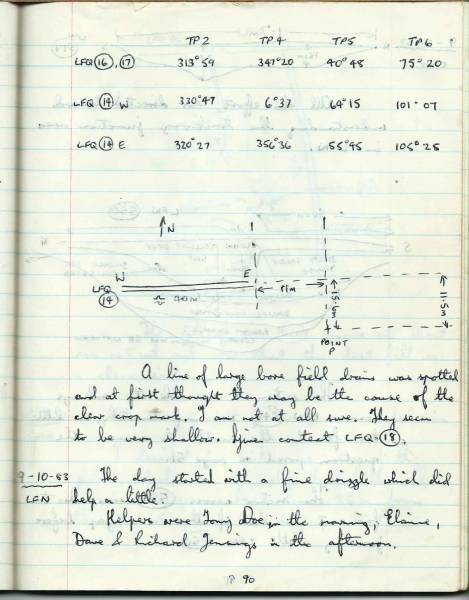 TP2 TP4 TP5 TP6
LFQ (16), (17) 313°59 347°20 40°48 75°20
LFQ (14) W 330°47 6°37 64°15 101°07
LFQ (14) E 320°27 356°36 55°45 105°25
N
W E
LFQ (14)
≈ 40m
11m
15.6m
11.5m
POINT P
A line of large bore field drains was spotted
and at first thought they may be the cause of the
clear crop mark. I am not at all sure. They seem
to be very shallow. Give context LFQ (18).
9-10-83 The day started with a fine drizzle which did
LFN help a little.
Helpers were Tony Doe in the morning, Elaine,
Dave & Richard Jennings in the afternoon.
P 90